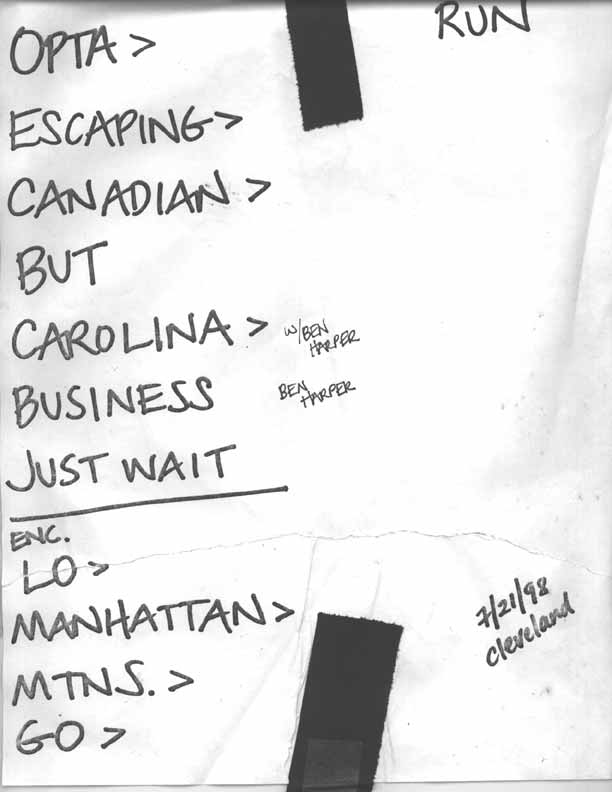 RUN
OPTA >
ESCAPING >
CANADIAN >
BUT
CAROLINA > W/BEN HARPER
BUSINESS BEN HARPER
JUST WAIT
ENC.
LO >
MANHATTAN >
MTNS. >
GO >
7/21/98
cleveland